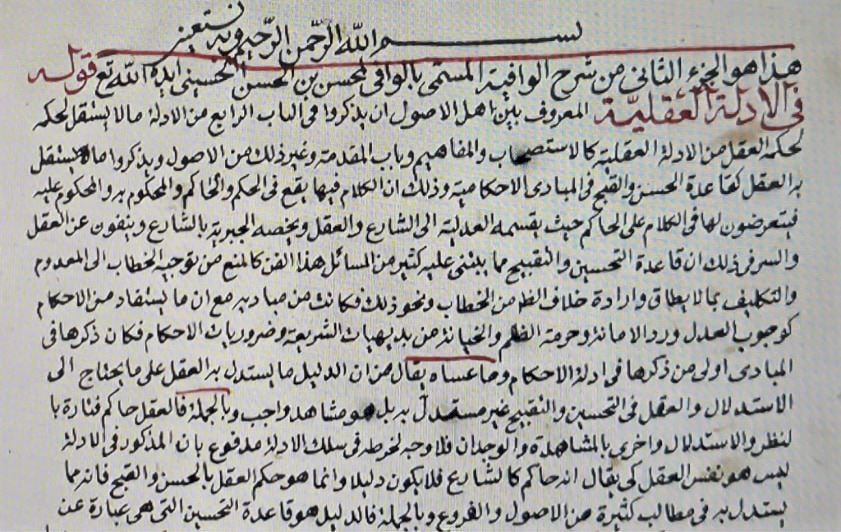 بسم الله الرحمن الرحيم وبه نستعين
هذا هو الجزء الثانى من شرح الوافية المسمى بالوافى لمحسن بن الحسن الحسينى ايده الله تع قوله
فى الادلة العقلية المعروف بين اهل الاصول ان يذكروا فى الباب الرابع من الادلة ما لا يستقل لحكمه
لحكمه العقل من الادلة العقلية كالاستصحاب والمفاهيم وباب المقدمة وغير ذلك من الاصول ويذكروا ما يستقل
به العقل كقاعدة الحسن والقبح فى المبادى الاحكامية وذلك ان الكلام فيها يقع فى الحكم والحاكم والمحكوم به والمحكوم عليه
فيتعرضون لها فى الكلام على الحاكم حيث يقسمه العدلية الى الشارع والعقل ويخصه الجبرية بالشارع وينفون عن العقل
والسر فى ذلك ان قاعدة التحسين والتقبيح مما يبتنى عليه كثير من المسائل هذا الفن كالمنع من توجيه الخطاب الى المعدوم
والتكليف بما لا يطاق وارادة خلاف الظ من الخطاب ونحو ذلك فكانت من مباديه مع ان ما يستفاد من الاحكام
كوجوب العدل ورد الامانة وحرمة الظلم والخيانة من بديهيات الشريعة وضروريات الاحكام فكان ذكرها فى
المبادى اولى من ذكرها فى ادلة الاحكام وما عساه يقال من ان الدليل ما يستدل به العقل على ما يحتاج الى
الاستدلال والعقل فى التحسين والتقبيح غير مستدل به بل هو مشاهد واجب وبالجملة فالعقل حاكم فتارة با
لنظر والاستدلال واخرى بالمشاهدة والوجدان فلا وجه لخرطه فى سلك الادلة مدفوع بان المذكور فى الادلة
ليس هو نفس العقل كى يقال انه حاكم كالشارع فلا يكون دليلا وانما هو حكم العقل بالحسن والقبح فانه مما
يستدل به فى مطالب كثيرة من الاصول والفروع وبالجملة فالدليل هو قاعدة التحسين التى هى عبارة عن